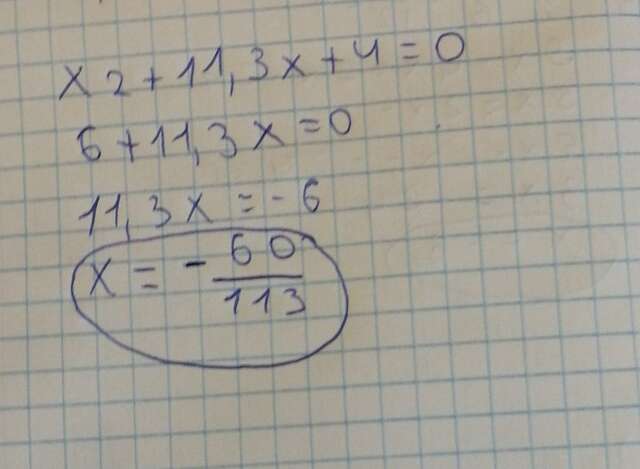 x 2 + 11,3x + 4 = 0
6 + 11,3x = 0
11,3x = - 6
x = - 60/113